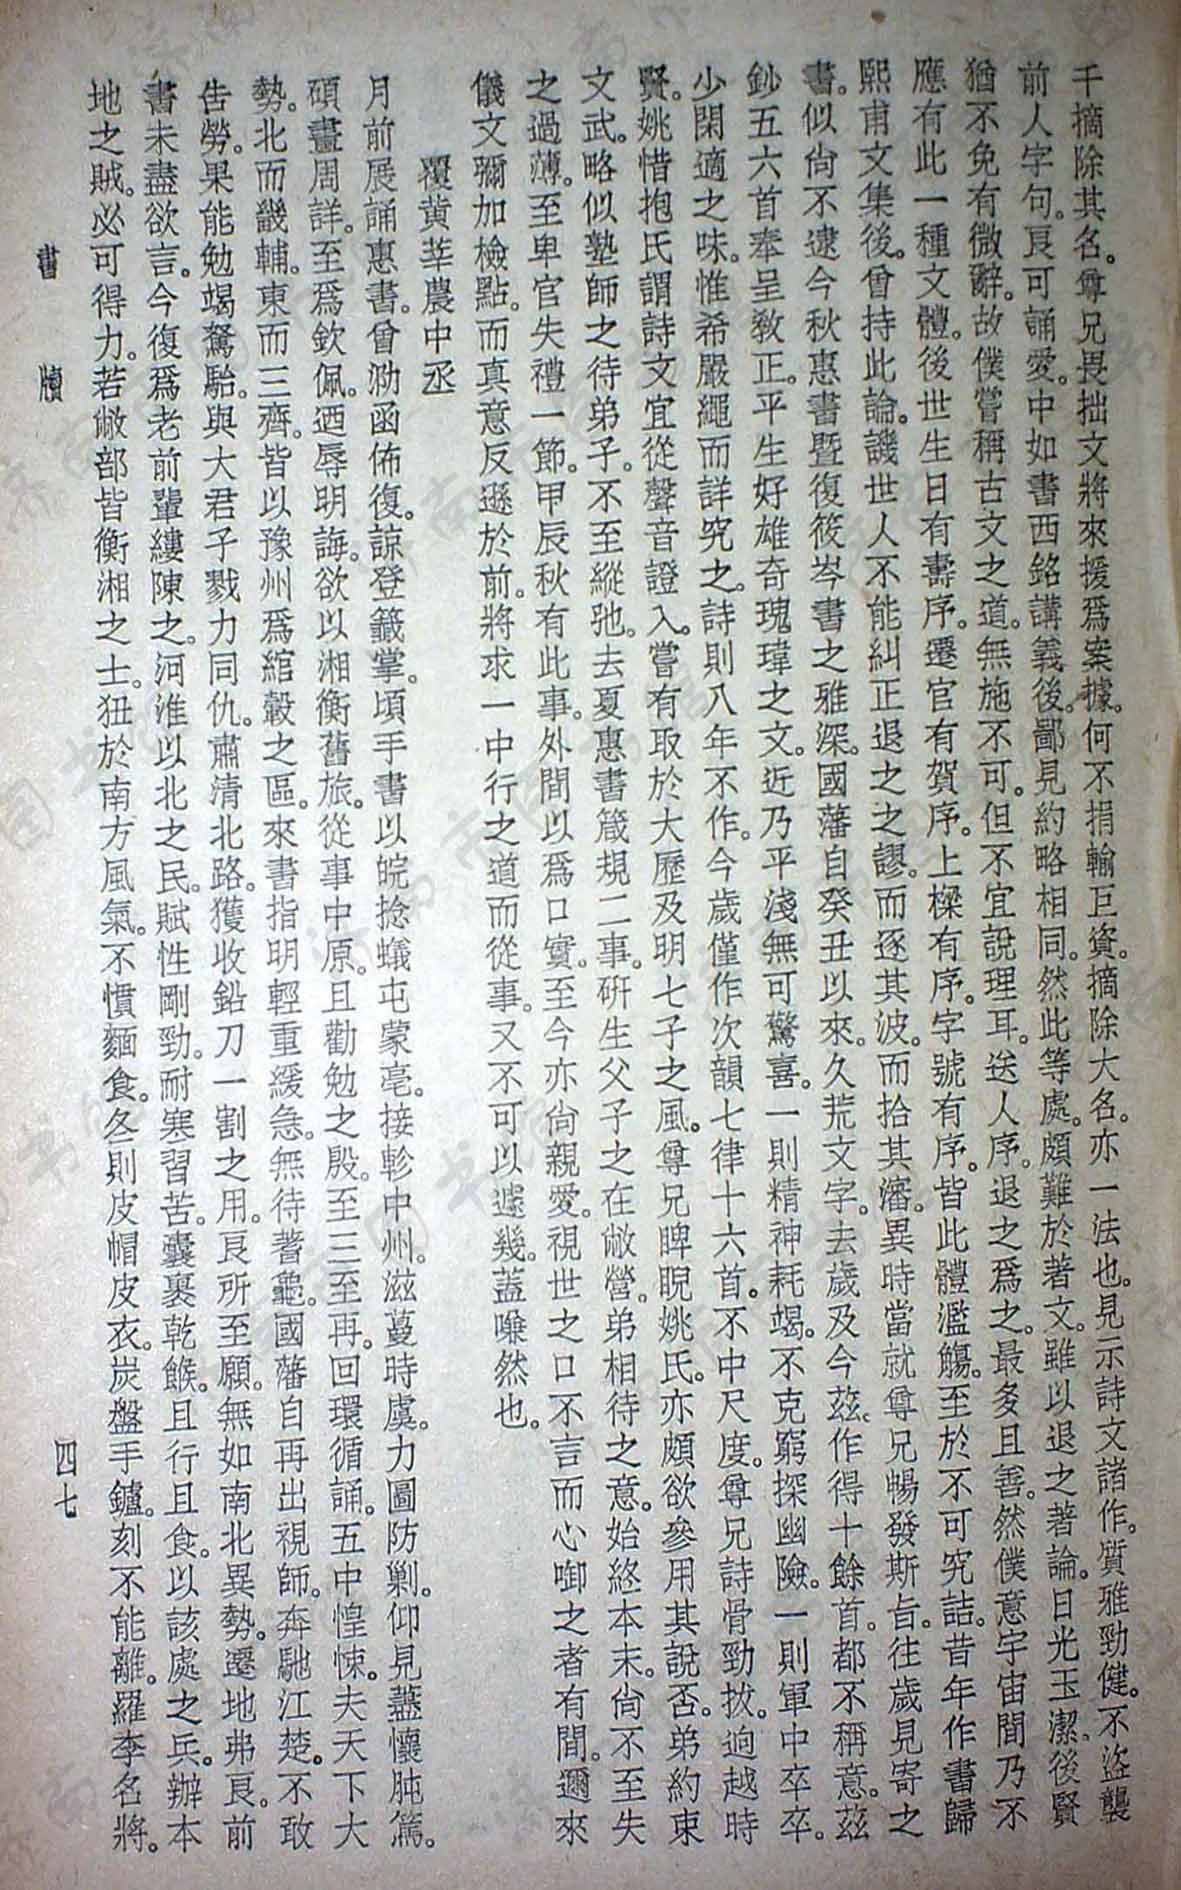 千摘除其名。尊兄畏拙文將來援爲案據。何不捐輸巨資。摘除大名。亦一法也。見示詩文諸作。質雅勁健。不盜襲
前人字句。良可誦愛。中如書西銘講義後。鄙見約略相同。然此等處。頗難於著文。雖以退之著論。日光玉潔。後賢
猶不免有微辭。故僕嘗稱古文之道。無施不可。但不宜說理耳。送人序。退之爲之。最多且善。然僕意宇宙間乃不
應有此一種文體。後世生日有壽序。遷官有賀序。上樑有序。字號有序。皆此體濫觴。至於不可究詰。昔年作書歸
熙甫文集後。曾持此論。譏世人不能糾正退之之謬。而逐其波。而拾其瀋。異時當就尊兄暢發斯旨。往歲見寄之
書。似尙不逮今秋惠書暨復筱岑書之雅深。國藩自癸丑以來。久荒文字。去歲及今茲。作得十餘首。都不稱意。茲
鈔五六首奉呈敎正。平生好雄奇瑰瑋之文。近乃平淺無可驚喜。一則精神耗竭。不克窮探幽險。一則軍中卒卒。
少閑適之味。惟希嚴繩而詳究之。詩則八年不作。今歲僅作次韻七律十六首。不中尺度。尊兄詩骨勁拔。迥越時
賢。姚惜抱氏謂詩文宜從聲音證入。嘗有取於大歷及明七子之風。尊兄睥睨姚氏。亦頗欲參用其說否。弟約束
文武。略似塾師之待弟子。不至縱弛。去夏惠書箴規二事。硏生父子之在敝營。弟相待之意。始終本末。尙不至失
之過薄。至卑官失禮一節。甲辰秋有此事。外間以爲口實。至今亦尙親愛。視世之口不言而心啣之者有間。邇來
儀文彌加檢點。而真意反遜於前。將求一中行之道而從事。又不可以遽幾。蓋嗛然也。
覆黃莘農中丞
月前展誦惠書。曾泐函佈復。諒登籤掌。頃手書以皖捻蟻屯蒙亳。接軫中州。滋蔓時虞。力圖防剿。仰見藎懷肫篤。
碩畫周詳。至爲欽佩。迺辱明誨。欲以湘衡舊旅。從事中原。且勸勉之殷。至三至再。回環循誦。五中惶悚。夫天下大
勢。北而畿輔。東而三齊。皆以豫州爲綰轂之區。來書指明輕重緩急。無待蓍龜。國藩自再出視師。奔馳江楚。不敢
告勞。果能勉竭駑駘。與大君子戮力同仇。肅清北路。獲收鉛刀一割之用。良所至願。無如南北異勢。遷地弗良。前
書未盡欲言。今復爲老前輩縷陳之。河淮以北之民。賦性剛勁。耐寒習苦。囊裹乾餱。且行且食。以該處之兵。辦本
地之賊。必可得力。若敝部皆衡湘之士。狃於南方風氣。不慣麵食。冬則皮帽皮衣。炭盤手鑪。刻不能離。羅李名將。
書 牘 四七